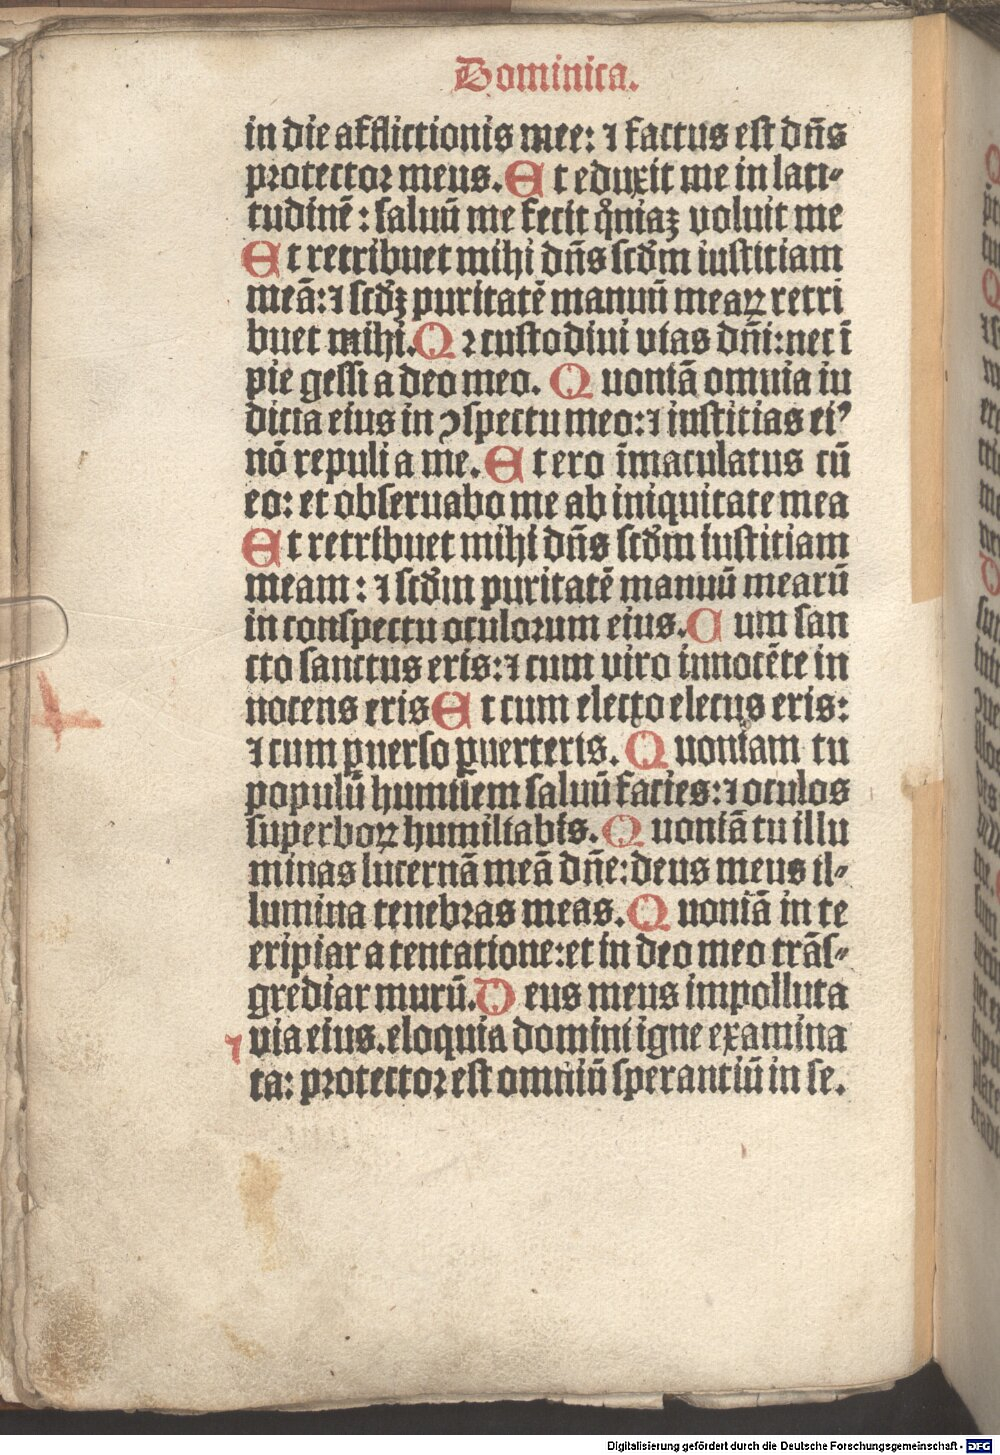 Dominica.
in die afflictionis mee: ⁊ factus est dn̄s
protector meus. Et eduxit me in lati⸗
tudinē : saluū me fecit qm̄iaꝫ voluit me
Et retribuet mihi dn̄s scd̄m iustitiam
meā: ⁊ scd̄ꝫ puritatē manuū meaꝝ retri
buet mihi. Qꝛ custodiui vias dn̄i: nec ī
pie gessi a deo meo. Quoniā omnia iu
dicia eius in ↄspectu meo: ⁊ iustitias eiꝰ
nō repuli a me. Et ero īmaculatus cū
eo: et obseruabo me ab iniquitate mea
Et retribuet mihi dn̄s scd̄m iustitiam
meam : ⁊ scd̄m puritatē manuū mearū
in conspectu oculoꝛum eius. Cum san
cto sanctus eris: ⁊ cum viro innocēte in
nocens eris Et cum electo elecus eris:
⁊ cum ꝑuerso ꝑuerteris. Quoniam tu
populū humilem saluū facies: ⁊ oculos
superboꝝ humiliabis. Quoniā tu illu
minas lucernā meā dn̄e: deus meus il⸗
lumina tenebꝛas meas. Quoniā in te
eripiar a tentatione: et in deo meo trās⸗
grediar murū. Deus meus impolluta
via eius. eloquia domini igne examina
ta: pꝛotectoꝛ est omniū sperantiū in se.
Digitalisierung gefördert durch die Deutsche Forschungsgemeinschaft - DFG